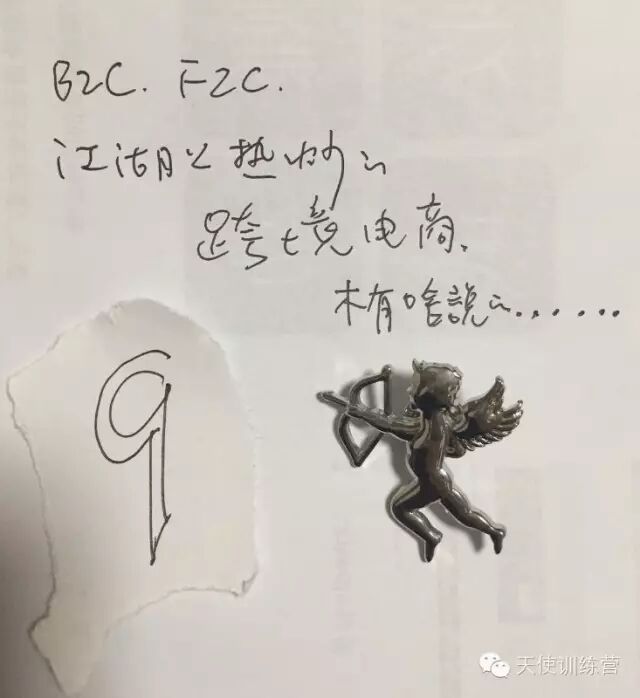 B2C. F2C.
江湖上热炒的
跨境电商、
木有啥說的......
9
天使训练营